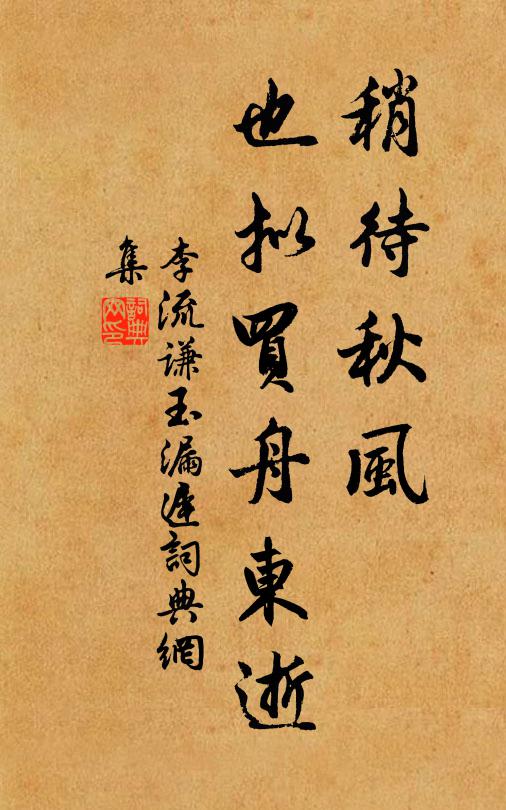 稍待秋風
也拟買舟東逝
李流谦玉漏遲詞典網
集
詞典